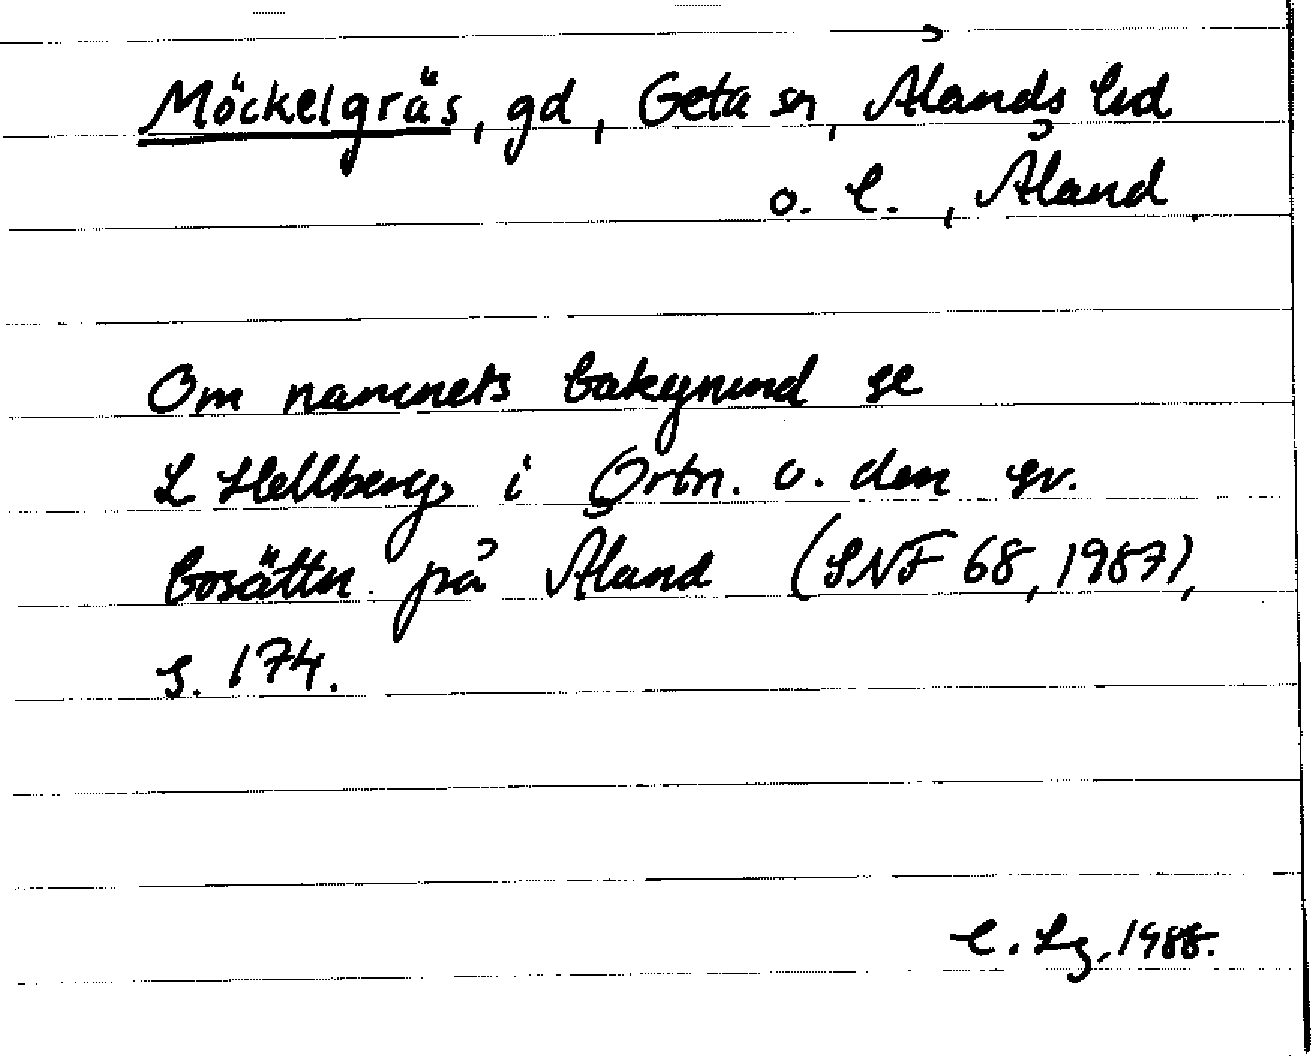 Möckelgräs, gd, Geta sn, Ålands hd
o. l., Åland
Om namnets bakgrund se
L Hellberg i Ortn. o. den sv.
bosättn. på Åland (SNF 68, 1987),
s. 174.
C. Lg. 1988.